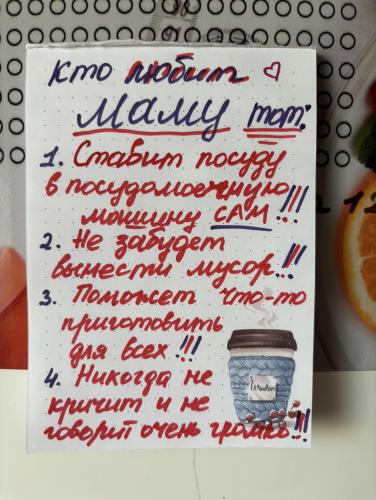 Кто любит
маму тот:
1. Ставит посуду
в посудомоечную
машину САМ...!!!
2. Не забудет
вынести мусор...!!
3. Поможет что-то
приготовить
для всех !!!
4. Никогда не
кричит и не
говорит очень громко...!!!
Winter
12